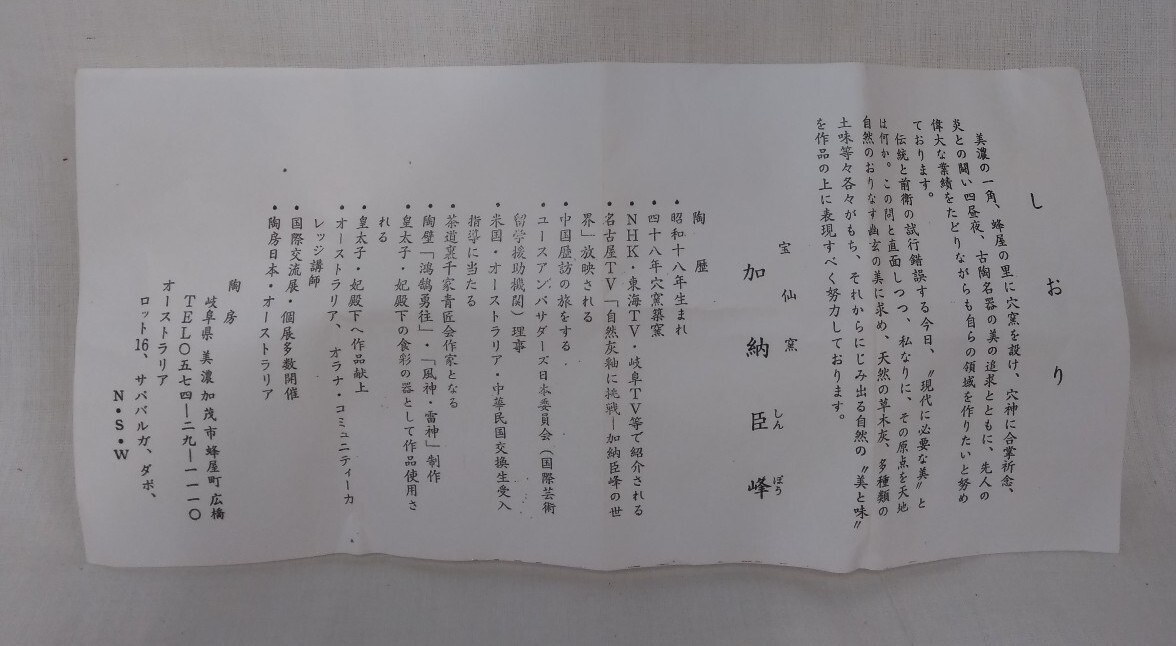 しおり
美濃の一角、蜂屋の里に穴窯を設け、穴神に合掌祈念、
炎との闘い四昼夜、古陶名器の美の追求とともに、先人の
偉大な業績をたどりながらも自らの領域を作りたいと努め
ております。
伝統と前衛の試行錯誤する今日、〝現代に必要な美〟と
は何か。この問と直面しつつ、私なりに、その原点を天地
自然のおりなす幽玄の美に求め、天然の草木灰、多種類の
土味等々各々がもち、それからにじみ出る自然の〝美と味〟
を作品の上に表現すべく努力しております。
宝仙窯
加納臣峰
しんぽう
陶歴
・昭和十八年生まれ
・四十八年穴窯築窯
・NHK・東海TV・岐阜TV等で紹介される
・名古屋TV「自然灰釉に挑戦―加納臣峰の世
界」放映される
・中国歴訪の旅をする
・ユースアンバサダーズ日本委員会(国際芸術
留学援助機関)理事
・米国・オーストラリア・中華民国交換生受入
指導に当たる
・茶道裏千家青匠会作家となる
・陶壁「鴻鵠勇往」・「風神・雷神」制作
・皇太子・妃殿下の食彩の器として作品使用さ
れる
・皇太子・妃殿下へ作品献上
・オーストラリア、オラナ・コミュニティーカ
レッジ講師
・国際交流展・個展多数開催
・陶房日本・オーストラリア
陶房
岐阜県美濃加茂市蜂屋町広橋
TEL〇五七四―二九―一一一〇
オーストラリア
ロット16、サババルガ、ダボ、
N・S・W